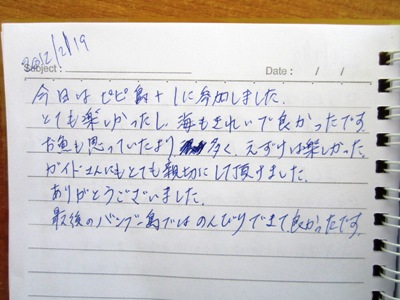 2012/12/19
Subject : Date : / /
今日は ピピ島 + 1に参加しました。
とても楽しかったし、海もきれいで良かったです
お魚も思っていたより 多く、えずけは楽しかった。
ガイドさんにもとても親切にして頂けました。
ありがとうございました。
最後のバンブー島ではのんびりできて良かったです。